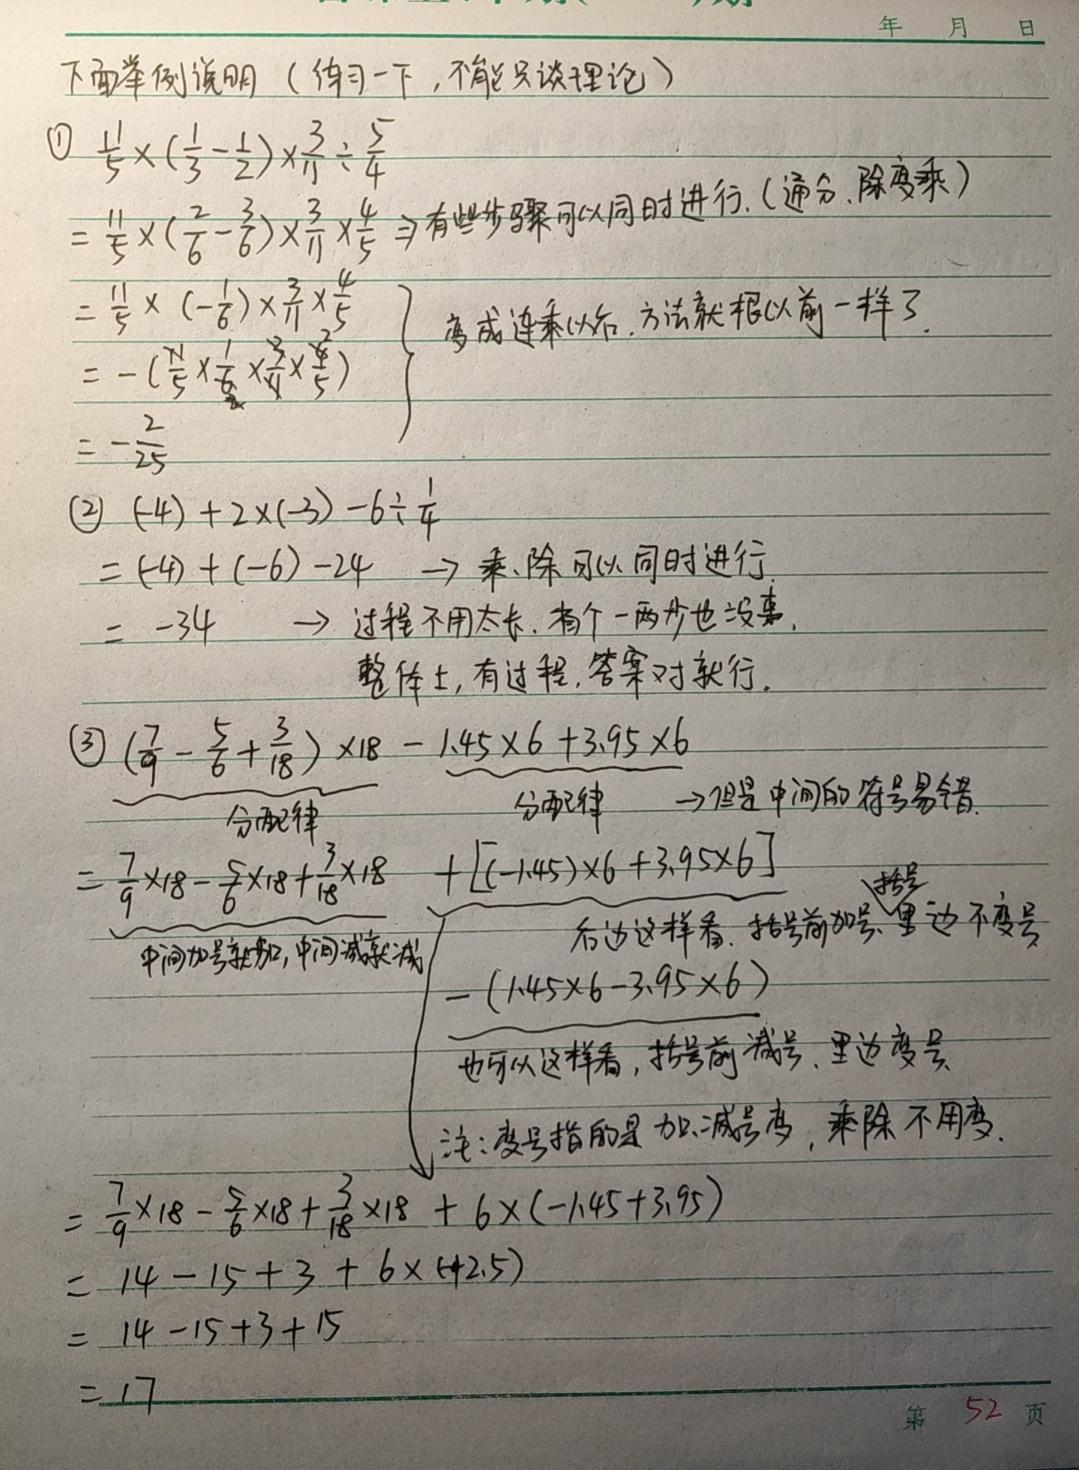 年 月 日
下面举例说明（练习一下，不能只谈理论）
① 11/5×(1/3-1/2)×3/11÷5/4
= 11/5×(2/6-3/6)×3/11×4/5 ⇒有些步骤可以同时进行.(通分、除变乘)
= 11/5×(-1/6)×3/11×4/5
变成连乘以后.方法就根以前一样了.
= -(11/5×1/6×3/11×4/5)
= -2/25
② (-4)+2×(-3)-6÷1/4
= (-4)+(-6)-24 → 乘、除可以同时进行.
= -34 → 过程不用太长.有个一两步也没事,
整体上,有过程,答案对就行.
③ (7/9-5/6+3/18)×18-1.45×6+3.95×6
分配律 分配律 →但是中间的符号易错.
= 7/9×18-5/6×18+3/18×18 +[(-1.45)×6+3.95×6]
后边这样看.括号前加号、括号里边不变号
中间加号就加,中间减就减
-(1.45×6-3.95×6)
也可以这样看,括号前减号、里边变号
注:变号指的是加、减号变,乘除不用变.
= 7/9×18-5/6×18+3/18×18+6×(-1.45+3.95)
= 14-15+3+6×(+2.5)
= 14-15+3+15
= 17
第 52 页